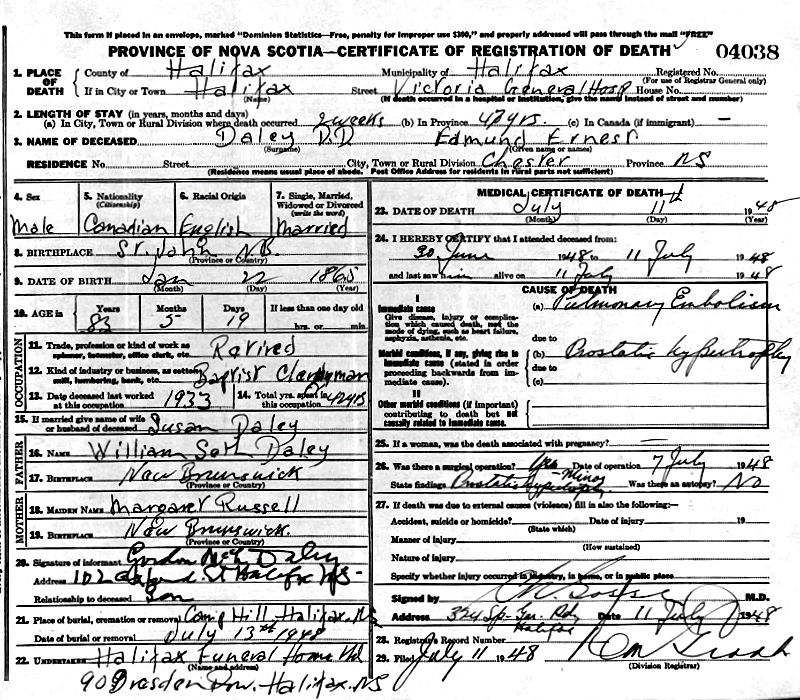 This form if placed in an envelope, marked "Dominion Statistics—Free, penalty for improper use $300," and properly addressed will pass through the mail "FREE"
PROVINCE OF NOVA SCOTIA—CERTIFICATE OF REGISTRATION OF DEATH 04038
1. PLACE OF DEATH { County of Halifax Municipality of Halifax Registered No.
(For use of Registrar General only)
If in City or Town Halifax Street Victoria General Hosp House No.
(Name) (If death occurred in a hospital or institution, give the name instead of street and number)
2. LENGTH OF STAY (in years, months and days)
(a) In City, Town or Rural Division where death occurred 2 weeks (b) In Province 42 yrs. (c) In Canada (if immigrant) —
3. NAME OF DECEASED Daley D.D Edmund Ernest
(Surname) (Given name or names)
RESIDENCE No. Street City, Town or Rural Division Chester Province NS
(Residence means usual place of abode. Post Office Address for residents in rural parts not sufficient)
4. Sex 5. Nationality (Citizenship) 6. Racial Origin 7. Single, Married, Widowed or Divorced (write the word)
Male Canadian English Married
8. BIRTHPLACE St. John NB.
(Province or Country)
9. DATE OF BIRTH Jan 22 1865
(Month) (Day) (Year)
10. AGE in Years Months Days If less than one day old
83 5 19 hrs. or min.
OCCUPATION
11. Trade, profession or kind of work as spinner, teamster, office clerk, etc. Retired
12. Kind of industry or business, as cotton mill, lumbering, bank, etc. Baptist Clergyman
13. Date deceased last worked at this occupation 1933 14. Total yrs. spent in this occupation 42 yrs
15. If married give name of wife or husband of deceased Susan Daley
FATHER
16. NAME William Seth Daley
17. BIRTHPLACE New Brunswick
(Province or Country)
MOTHER
18. MAIDEN NAME Margaret Russell
19. BIRTHPLACE New Brunswick.
(Province or Country)
20. Signature of informant Gordon Daley
Address 102 St Halifax NS
Relationship to deceased Son
21. Place of burial, cremation or removal Camp Hill Halifax. NS
Date of burial or removal July 13th 1948
22. UNDERTAKER Halifax Funeral Home Ltd
(Name and address)
90 Dresden Row. Halifax. NS
MEDICAL CERTIFICATE OF DEATH
23. DATE OF DEATH July 11th 1948
(Month) (Day) (Year)
24. I HEREBY CERTIFY that I attended deceased from:
30 June 1948 to 11 July 1948
and last saw him alive on 11 July 1948
CAUSE OF DEATH
I
Immediate cause (a) Pulmonary Embolism
Give disease, injury or complication which caused death, not the mode of dying, such as heart failure, asphyxia, asthenia, etc. due to
Morbid conditions, if any, giving rise to immediate cause (stated in order proceeding backwards from immediate cause). (b) Prostatic hypertrophy
due to
(c)
II
Other morbid conditions (if important) contributing to death but not causally related to immediate cause.
25. If a woman, was the death associated with pregnancy? —
26. Was there a surgical operation? Yes - Minor Date of operation 7 July 1948
State findings Prostatic hypertrophy. Was there an autopsy? No
27. If death was due to external causes (violence) fill in also the following:—
Accident, suicide or homicide? Date of injury 19
(State which)
Manner of injury
(How sustained)
Nature of injury
Specify whether injury occurred in industry, in home, or in public place
Signed by M.D.
Address 324 Sp. Gar. Rd Halifax Date 11 July 1948
28. Registrars Record Number
29. Filed July 11 1948
(Division Registrar)